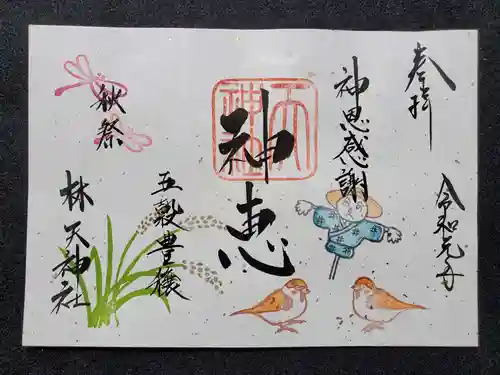 奉拝
令和元年
神恩感謝
神恵
天神社
五穀豊穣
秋祭
林天神社